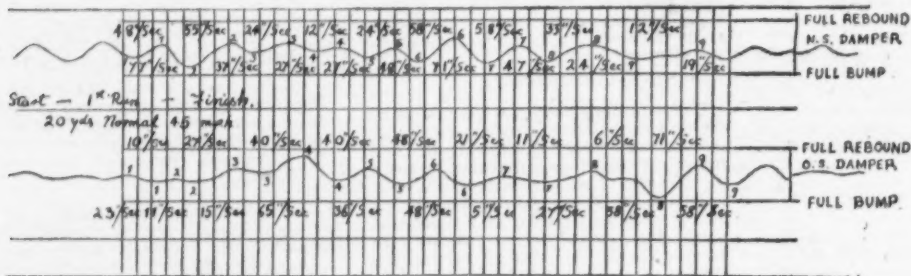 48"/Sec 55"/Sec 24"/Sec 12"/Sec 24"/Sec 58"/Sec 58"/Sec 35"/Sec 12"/Sec FULL REBOUND
N.S. DAMPER
77"/Sec 37"/Sec 27"/Sec 27"/Sec 48"/Sec 71"/Sec 47"/Sec 24"/Sec 19"/Sec FULL BUMP
Start — 1st Run — Finish.
20 yds Normal 45 mph
10"/Sec 27"/Sec 40"/Sec 40"/Sec 48"/Sec 21"/Sec 11"/Sec 6"/Sec 71"/Sec FULL REBOUND
O.S. DAMPER
1 2 3 4 5 6 7 8 9
1 2 3 4 5 6 7 8 9
23"/Sec 11"/Sec 15"/Sec 65"/Sec 36"/Sec 48"/Sec 5"/Sec 27"/Sec 38"/Sec 58"/Sec FULL BUMP